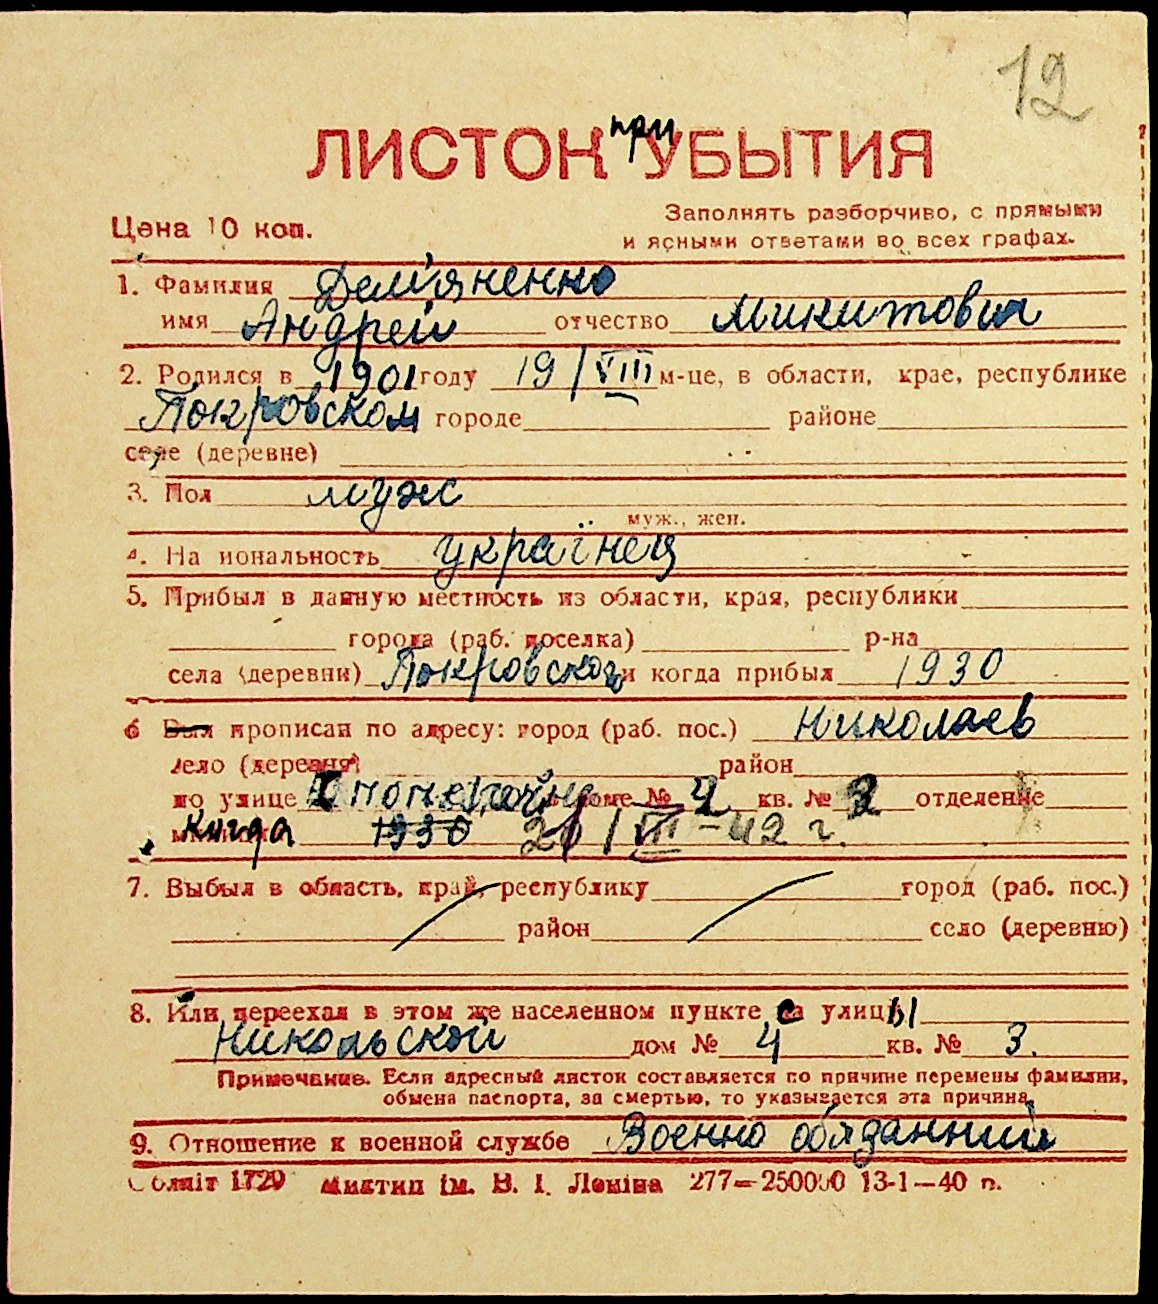 12
ЛИСТОК при УБЫТИЯ
Цена 10 коп.
Заполнять разборчиво, с прямыми
и ясными ответами во всех графах.
1. Фамилия Демʼяненко
имя Андрей отчество Микитович
2. Родился в 1901 году 19/VIII м-це, в области, крае, республике
Покровском городе районе
селе (деревне)
3. Пол муж
муж., жен.
4. На иональность українец
5. Прибыл в данную местность из области, края, республики
города (раб. поселка) р-на
села (деревни) Покровского и когда прибыл 1930
6 Был прописан по адресу: город (раб. пос.) Николаев
село (деревня) район
по улице доме № 4 кв. № 2 отделение
Когда 1930 /VIII-42 г.
7. Выбыл в область, край, республику город (раб. пос.)
район село (деревню)
8. Или переехал в этом же населенном пункте с улицы
Никольской дом № 4 кв. № 3.
Примечание. Если адресный листок составляется по причине перемены фамилии,
обмена паспорта, за смертью, то указывается эта причина.
9. Отношение к военной службе Военно обязанний
Облліт 1729 Миктип ім. В. І. Леніна 277—250000 13-1—40 р.